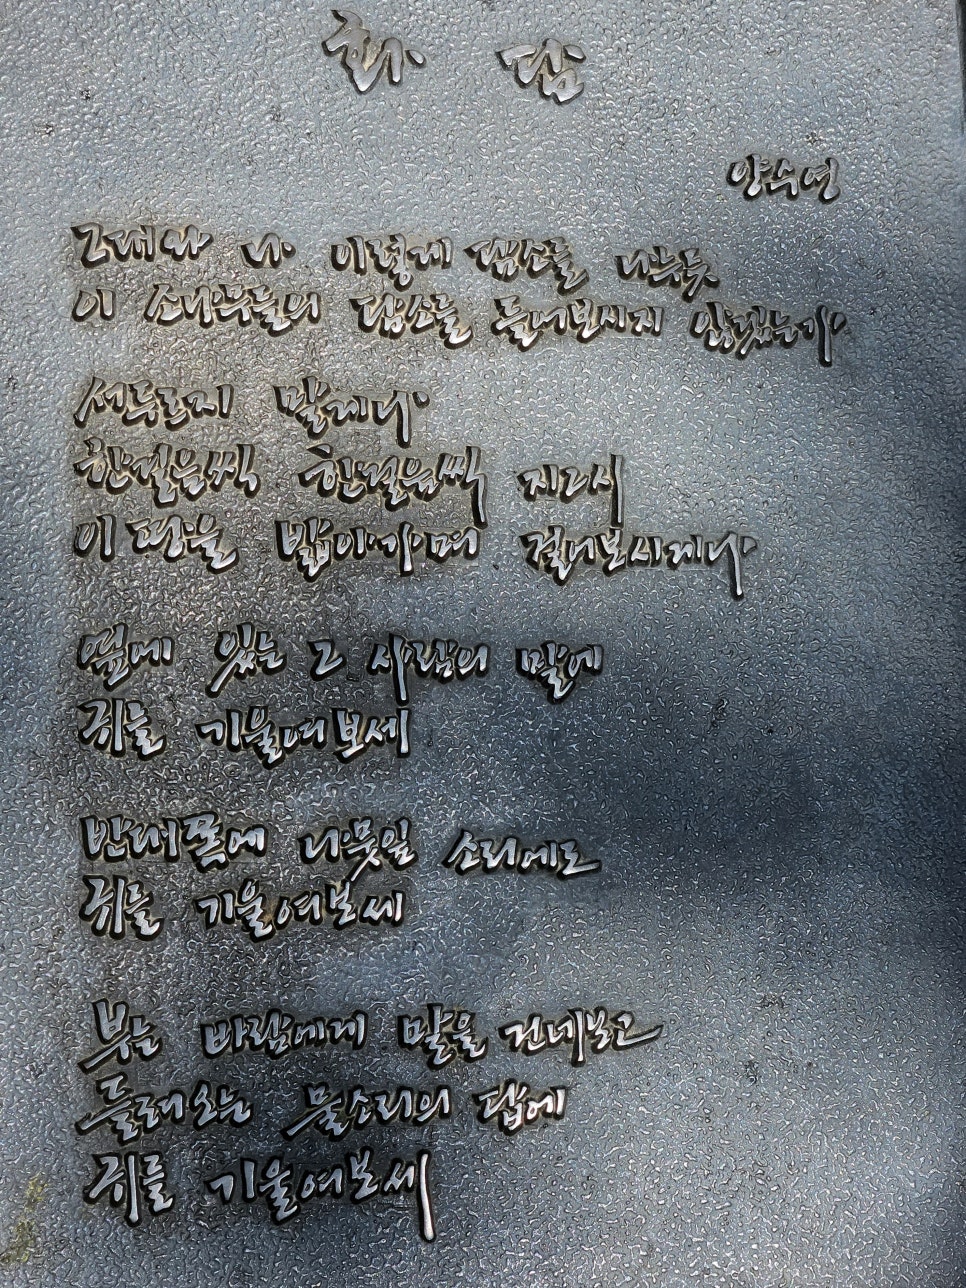 화 담
양수영
그대와 나 이렇게 담소를 나누듯
이 소나무들의 담소를 들어보시지 않겠는가
서두르지 말게나
한걸음씩 한걸음씩 지그시
이 땅을 밟아가며 걸어보시게나
옆에 있는 그 사람의 말에
귀를 기울여보세
반대쪽에 나뭇잎 소리에도
귀를 기울여보세
부는 바람에게 말을 건네보고
들려오는 물소리의 답에
귀를 기울여보세